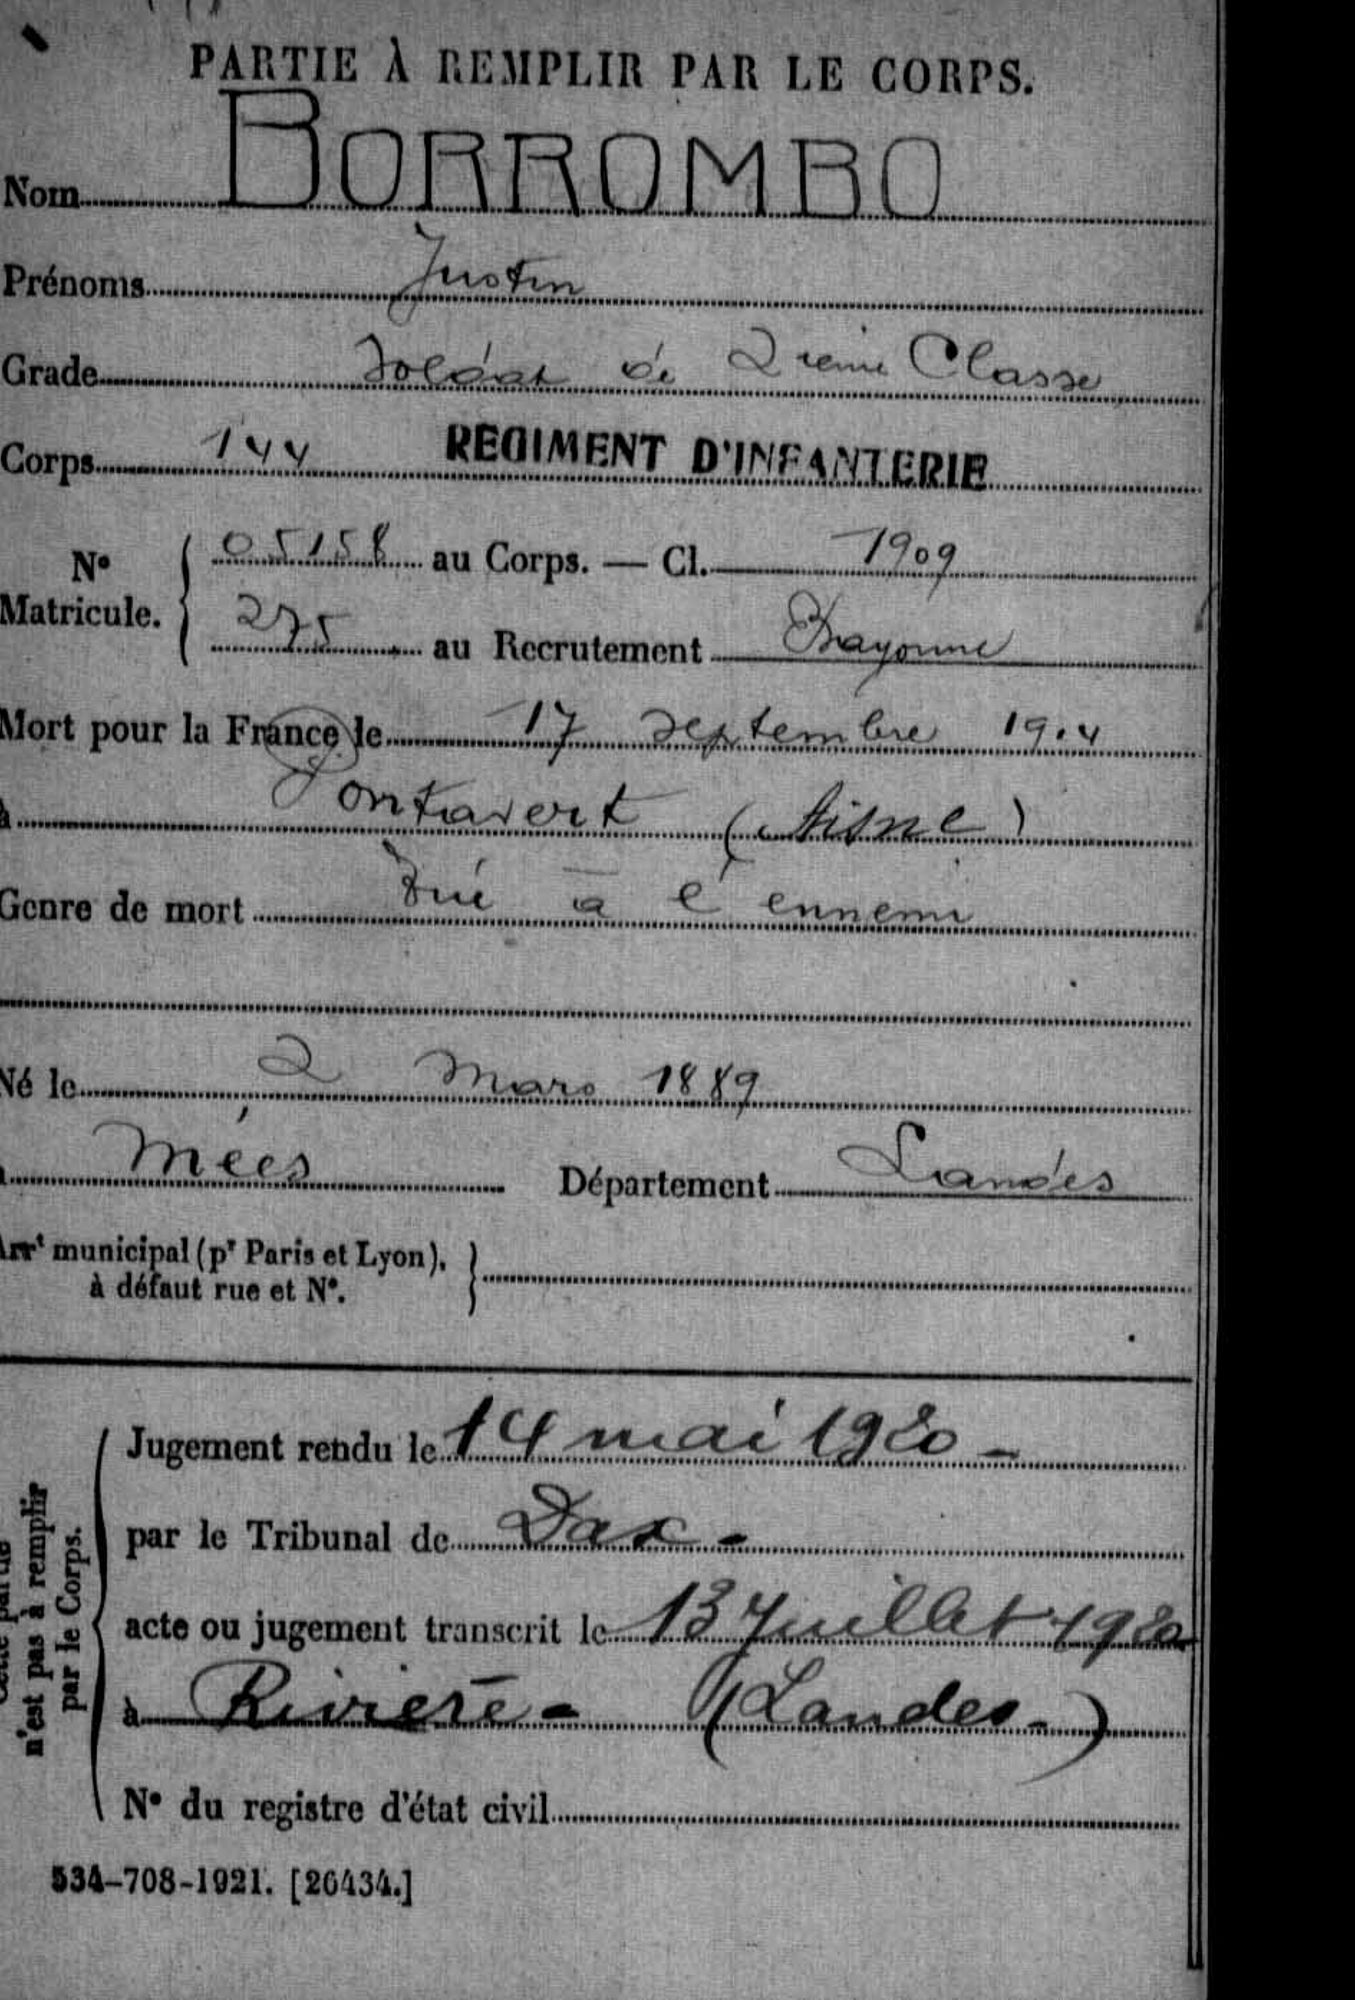 PARTIE À REMPLIR PAR LE CORPS.
Nom BORROMBO
Prénoms Justin
Grade Soldat de 2ième Classe
Corps 144 REGIMENT D'INFANTERIE
N° Matricule. { 05158 au Corps. — Cl. 1909
275 au Recrutement Bayonne
Mort pour la France le 17 septembre 1914
à Pontavert (Aisne)
Genre de mort Tué à l'ennemi
Né le 2 Mars 1889
à Mées Département Landes
Arrt municipal (pr Paris et Lyon), à défaut rue et N°. }
Cette partie n'est pas à remplir par le Corps.
Jugement rendu le 14 mai 1920 -
par le Tribunal de Dax -
acte ou jugement transcrit le 13 Juillet 1920
à Rivière - (Landes -)
N° du registre d'état civil
534-708-1921. [26434.]